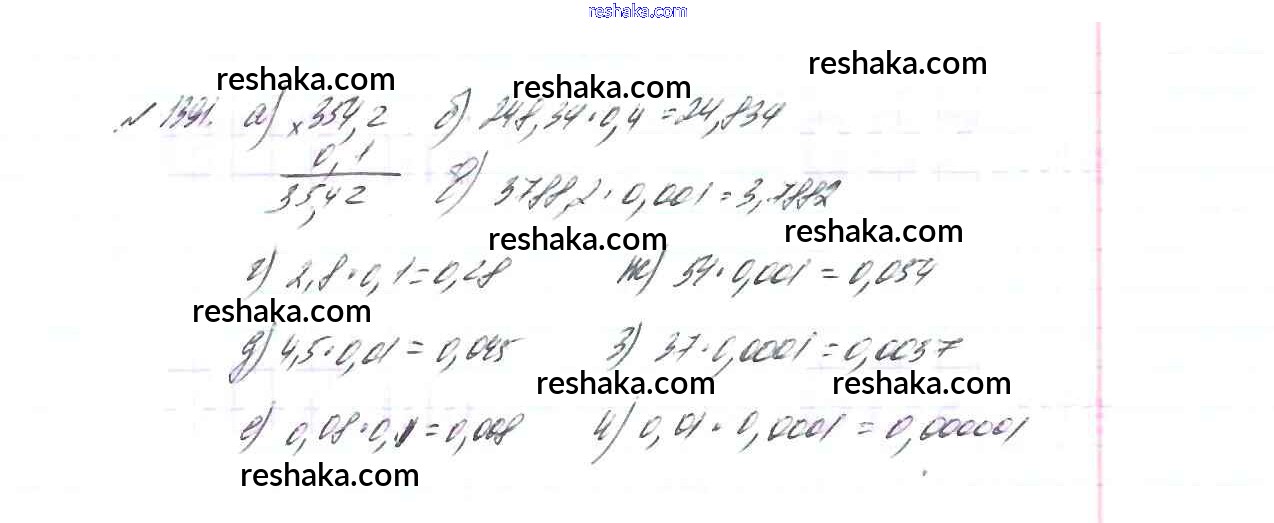 reshaka.com
reshaka.com reshaka.com reshaka.com
№ 1391. а) × 354,2 б) 248,34·0,4 = 24,834
0,1
35,42 в) 3788,2 · 0,001 = 3,7882
reshaka.com reshaka.com
г) 2,8 · 0,1 = 0,28 ж) 54 · 0,001 = 0,054
reshaka.com
д) 4,5 · 0,01 = 0,045 з) 37 · 0,0001 = 0,0037
reshaka.com reshaka.com
е) 0,08 · 0,1 = 0,008 и) 0,01 · 0,0001 = 0,000001
reshaka.com